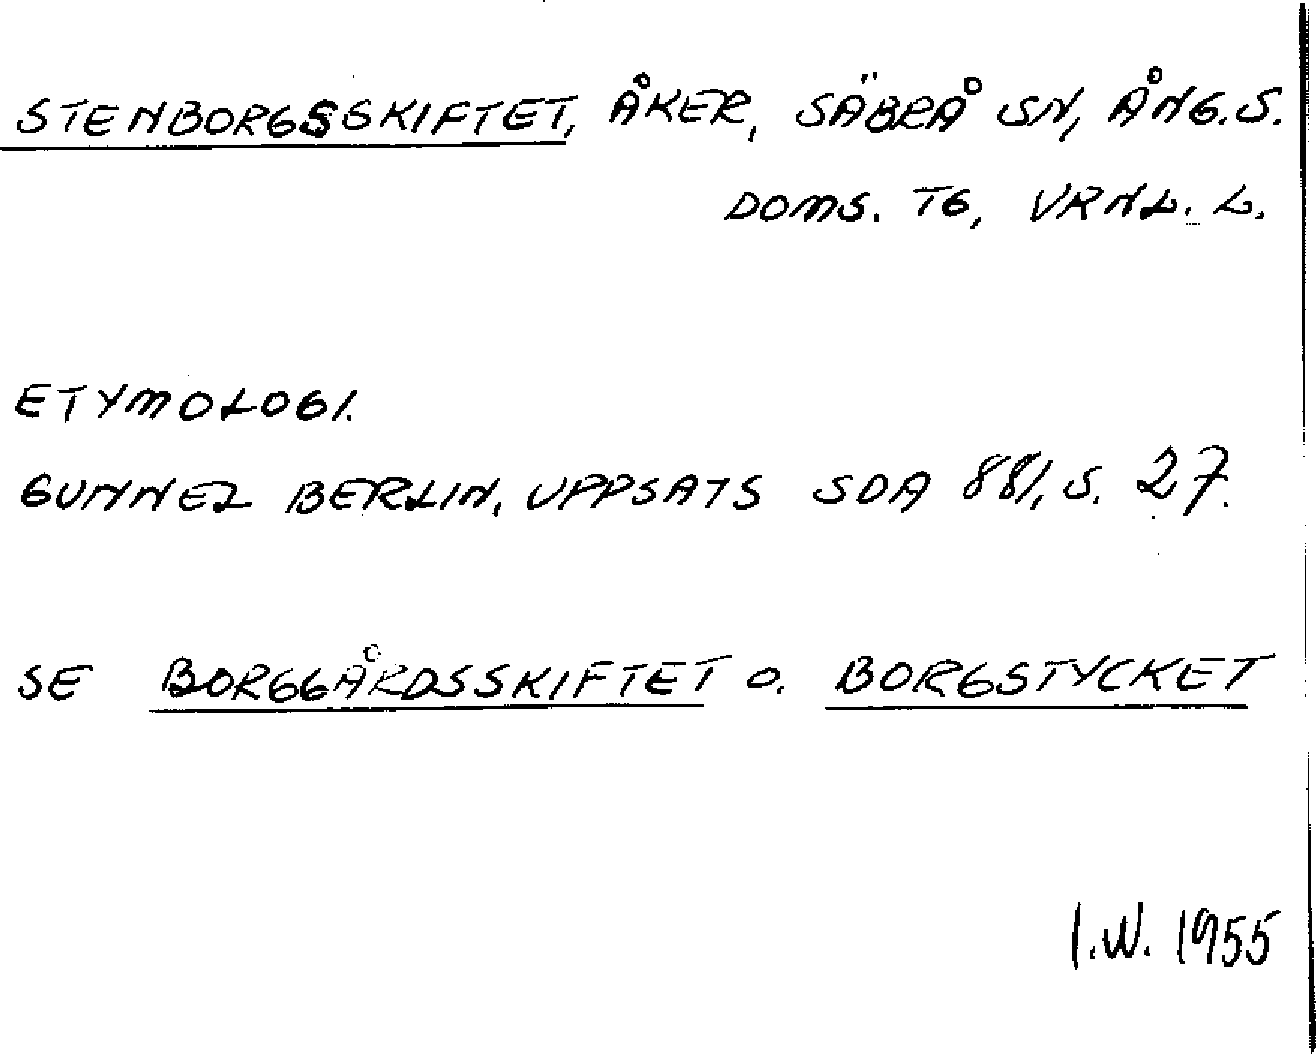 STENBORGSSKIFTET, ÅKER, SÄBRÅ SN, ÅNG. S.
DOMS. TG, VRNL. L.
ETYMOLOGI.
GUNNEL BERLIN, UPPSATS SOA 881, S. 27.
SE BORGGÅRDSSKIFTET O. BORGSTYCKET
I.W. 1955